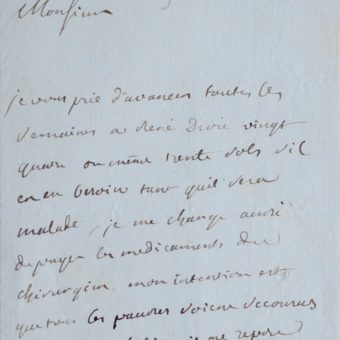 Monsieur
je vous prie d'avancer toutes les
semaines a René Drvie vingt
quatre ou même trente sols s'il
en en besoin tant quil sera
malade, je me charge aussi
de payer les medicaments du
chirurgien, mon intention est
que tous les pauvres soient secourus
je me repose